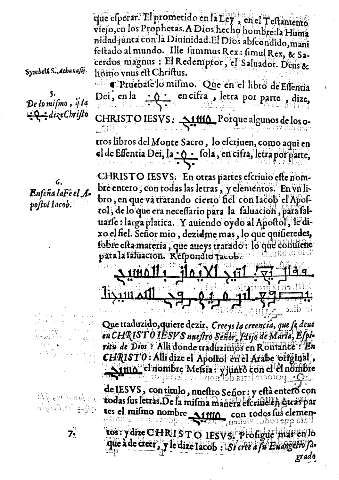 que esperar. El prometido en la Ley, en el Testamento
viejo, en los Prophetas. A Dios hecho hombre: la Huma
nidad junta con la Diuinidad. El Dios abscondido, mani
festado al mundo. Ille summus Rex: simul Rex, &
Sacerdos magnus: El Redemptor, el Saluador. Deus &
homo vnus est Christus.
Symbolū S. Athanasij.
¶ Prueuase lo mismo. Que en el libro de Essentia
5.
De lo mismo, q̃ la
dize Christo
Dei, en la en cifra, letra por parte, dize,
CHRISTO IESVS: Porque algunos de los o-
tros libros del Monte Sacro, lo escriuen, como aqui en
el de Essentia Dei, la sola, en cifra, letra por parte,
6.
Enseña la Fè el A-
postol Iacob.
CHRISTO IESVS. En otras partes escriuio este nom-
bre entero, con todas las letras, y elementos. En vn li-
bro, en que và tratando cierto fiel con Iacob el Apos-
tol, de lo que era necessario para la saluacion, para sal-
uarse: larga platica. Y auiendo oydo al Apostol, le di-
xo el fiel. Señor mio, dezidme mas, lo que quisieredes,
sobre esta materia, que aueys tratado: lo que conuiene
para la saluacion. Respondio Iacob.
Que traduzido, quiere dezir. Creeys la creencia, que se deue
en CHRISTO IESVS nuestro Señor, Hijo de Maria, Espi-
ritu de Dios: Alli donde traduzimos en Romance: En
CHRISTO: Alli dize el Apostol en el Arabe original,
el nombre Mesia: y juntò con el el nombre
de IESVS, con titulo, nuestro Señor: y està entero con
todas sus letras. De la misma manera escriue en otras par
tes el mismo nombre con todos sus elemen-
7.
tos: y dize CHRISTO IESVS. Prosigue mas en lo
que à de creer, y le dize Iacob: Si cree a su Euangelio sa-
grado